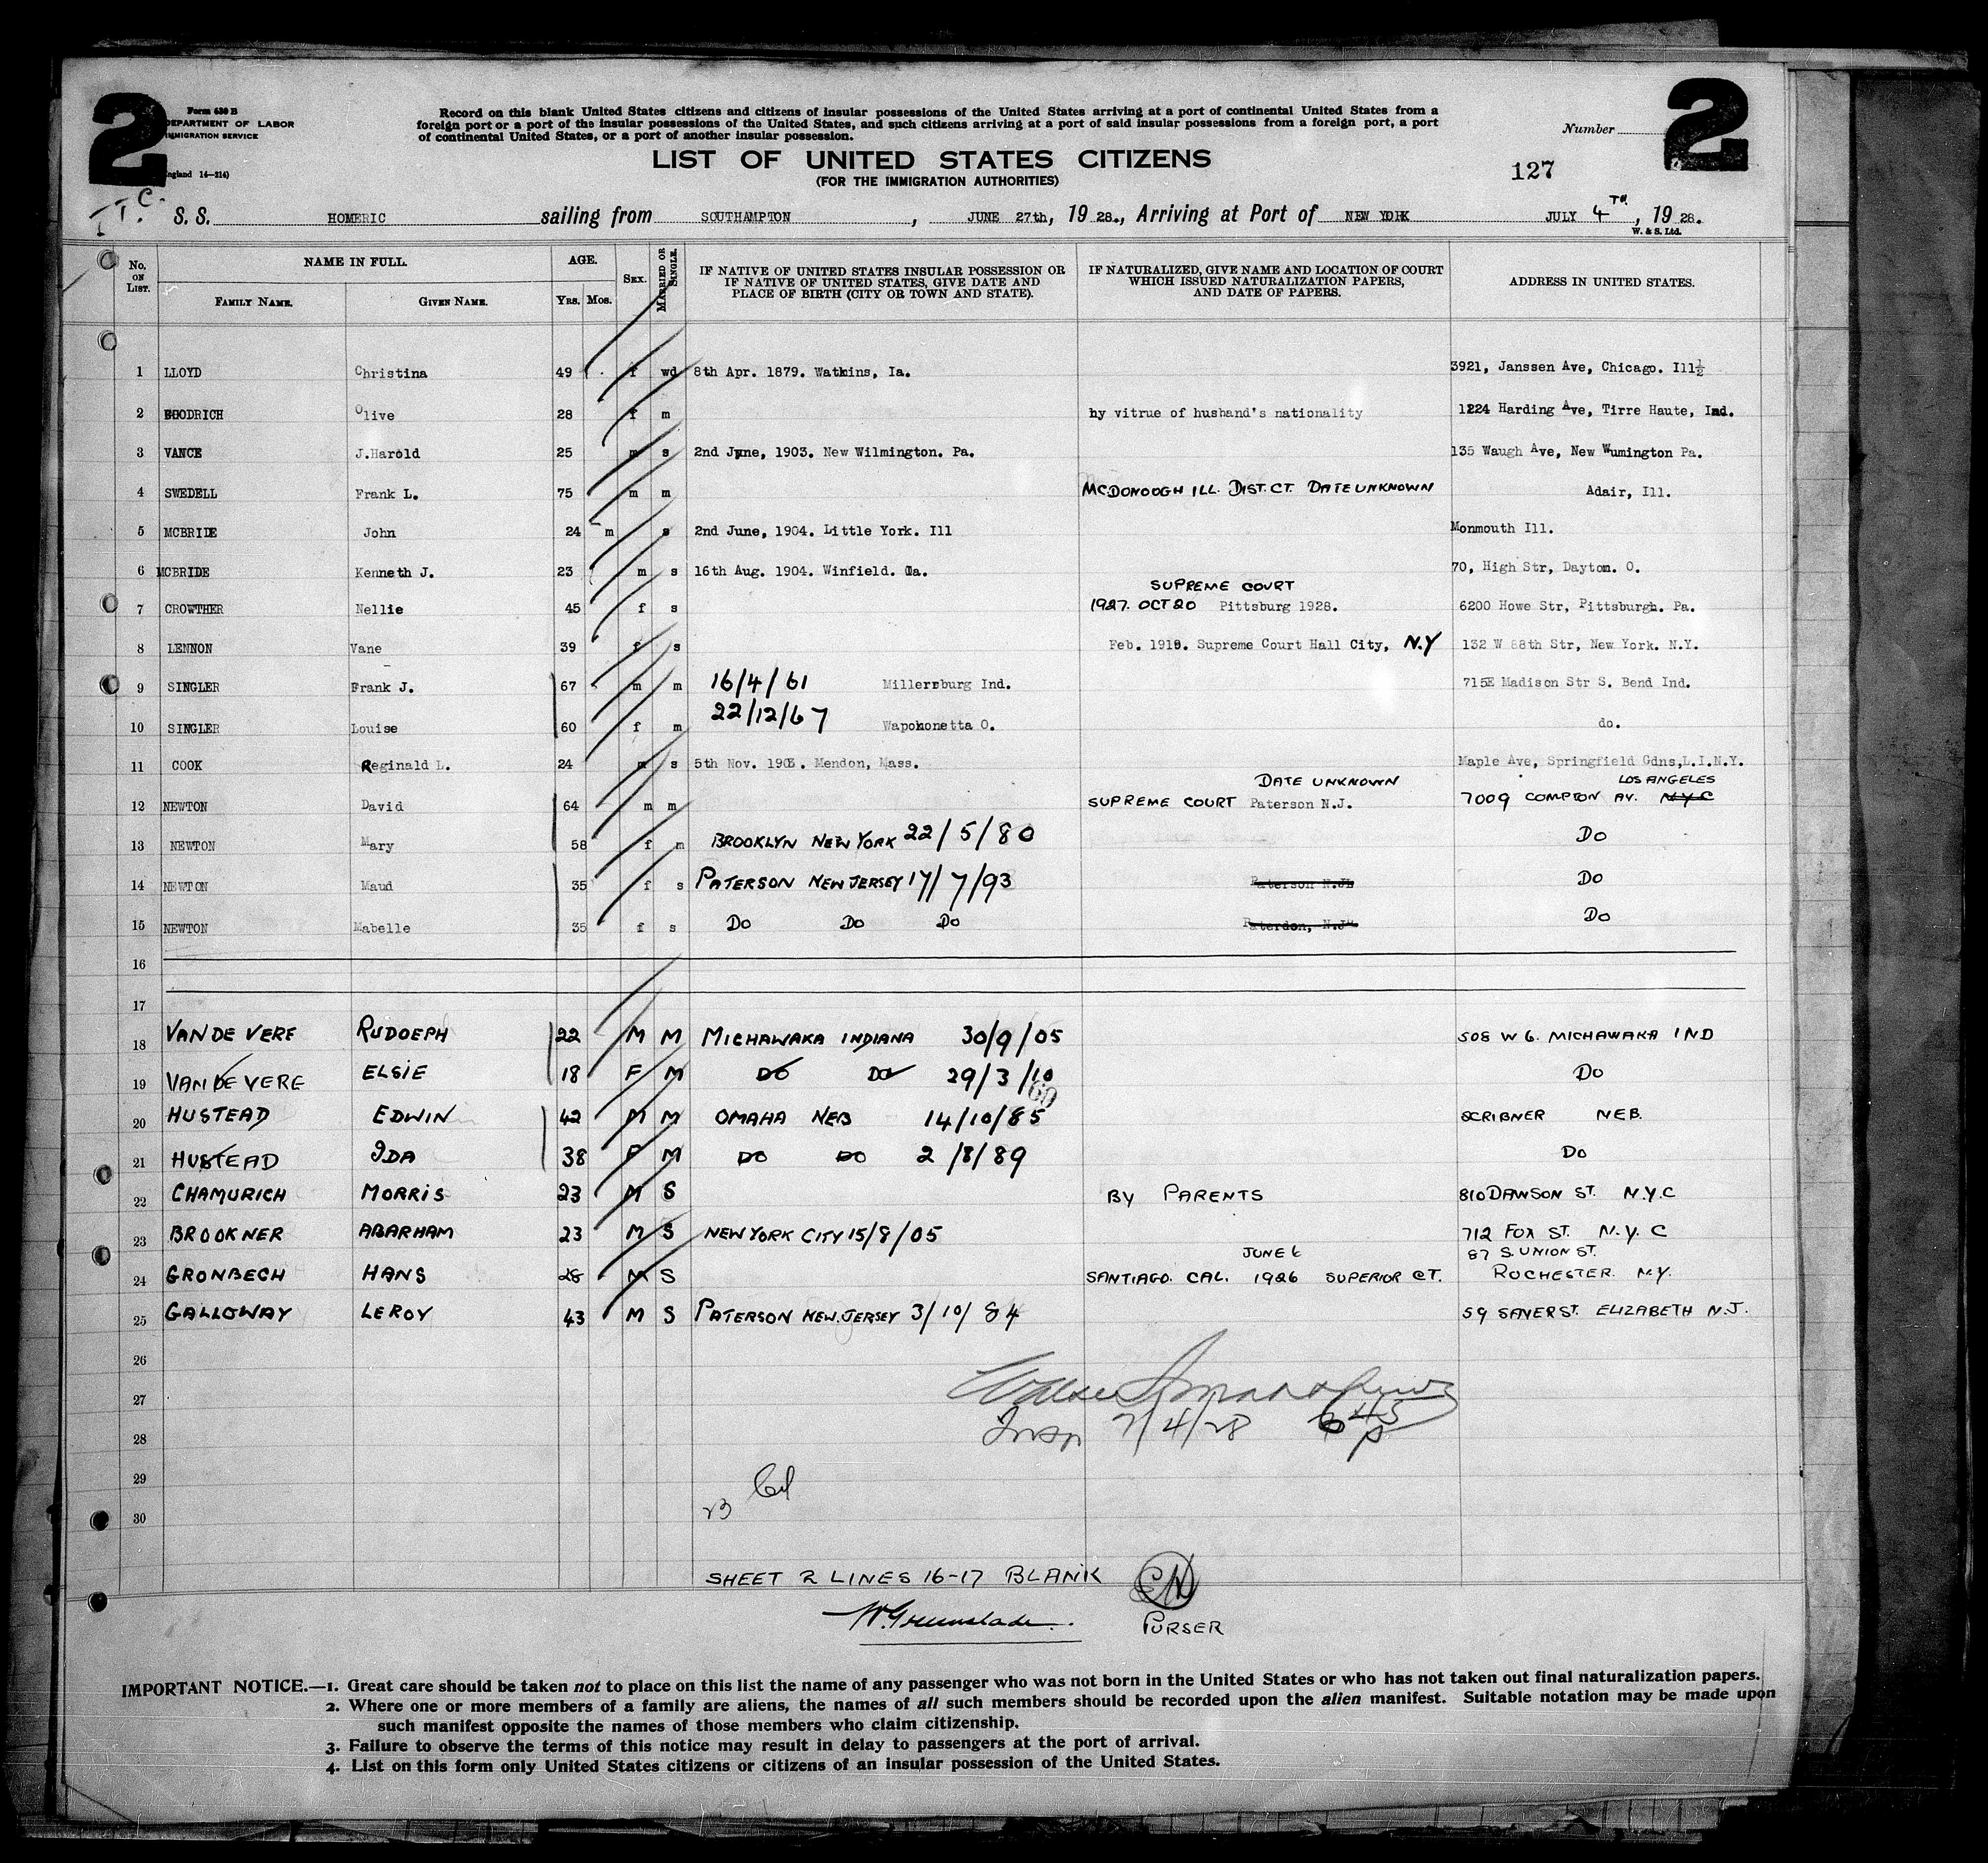 2 2
Form 630 B
DEPARTMENT OF LABOR
IMMIGRATION SERVICE
Record on this blank United States citizens and citizens of insular possessions of the United States arriving at a port of continental United States from a
foreign port or a port of the insular possessions of the United States, and such citizens arriving at a port of said insular possessions from a foreign port, a port
of continental United States, or a port of another insular possession.
Number
LIST OF UNITED STATES CITIZENS
(FOR THE IMMIGRATION AUTHORITIES)
127
ngland 14—214)
T.C. S. S. HOMERIC sailing from SOUTHAMPTON, JUNE 27th, 1928., Arriving at Port of NEW YORK JULY 4TH, 1928.
W. & S. Ltd.
No. ON LIST. NAME IN FULL. AGE. SEX. MARRIED OR SINGLE. IF NATIVE OF UNITED STATES INSULAR POSSESSION OR IF NATIVE OF UNITED STATES, GIVE DATE AND PLACE OF BIRTH (CITY OR TOWN AND STATE). IF NATURALIZED, GIVE NAME AND LOCATION OF COURT WHICH ISSUED NATURALIZATION PAPERS, AND DATE OF PAPERS. ADDRESS IN UNITED STATES.
FAMILY NAME. GIVEN NAME. YRS. MOS.
1 LLOYD Christina 49 f wd 8th Apr. 1879. Watkins, Ia. 3921, Janssen Ave, Chicago. Ill½
2 GOODRICH Olive 28 f m by vitrue of husband's nationality 1224 Harding Ave, Tirre Haute, Ind.
3 VANCE J.Harold 25 m s 2nd June, 1903. New Wilmington. Pa. 135 Waugh Ave, New Wumington Pa.
4 SWEDELL Frank L. 75 m m MCDONOOGH ILL. DIST. CT. DATE UNKNOWN Adair, Ill.
5 MCBRIDE John 24 m s 2nd June, 1904. Little York. Ill Monmouth Ill.
6 MCBRIDE Kenneth J. 23 m s 16th Aug. 1904. Winfield. Ia. 70, High Str, Dayton. O.
SUPREME COURT
7 CROWTHER Nellie 45 f s 1927. OCT 20 Pittsburg 1928. 6200 Howe Str, Pittsburgh. Pa.
8 LENNON Vane 39 f s Feb. 1918. Supreme Court Hall City, N.Y 132 W 88th Str, New York. N.Y.
9 SINGLER Frank J. 67 m m 16/4/61 Millersburg Ind. 715E Madison Str S. Bend Ind.
10 SINGLER Louise 60 f m 22/12/67 Wapokonetta O. do.
11 COOK Reginald L. 24 m s 5th Nov. 1903. Mendon, Mass. Maple Ave, Springfield Gdns,L.I.N.Y.
DATE UNKNOWN LOS ANGELES
12 NEWTON David 64 m m SUPREME COURT Paterson N.J. 7009 COMPTON AV. N.Y.C
13 NEWTON Mary 58 f m BROOKLYN NEW YORK 22/5/80 DO
14 NEWTON Maud 35 f s PATERSON NEW JERSEY 17/7/93 Paterson N.J. DO
15 NEWTON Mabelle 35 f s DO DO DO Paterdon, N.J" DO
16
17
18 VAN DE VERE RUDOEPH 22 M M MICHAWAKA INDIANA 30/9/05 508 W 6. MICHAWAKA IND
19 VAN DE VERE ELSIE 18 F M DO DO 29/3/10 DO
20 HUSTEAD EDWIN 42 M M OMAHA NEB 14/10/85 SCRIBNER NEB.
21 HUSTEAD IDA 38 F M DO DO 2/8/89 DO
22 CHAMURICH MORRIS 23 M S BY PARENTS 810 DAWSON ST. N.Y.C
23 BROOKNER ABARHAM 23 M S NEW YORK CITY 15/8/05 712 FOX ST. N.Y.C
JUNE 6 87 S. UNION ST.
24 GRONBECH HANS 28 M S SANTIAGO. CAL. 1926 SUPERIOR CT. ROCHESTER N.Y.
25 GALLOWAY LEROY 43 M S PATERSON NEW.JERSEY 3/10/84 59 SAYER ST. ELIZABETH N.J.
26
27
28 Insp 7/4/28 645 p
29
23
30
SHEET 2 LINES 16-17 BLANK
W. Greenslade. PURSER
IMPORTANT NOTICE.—1. Great care should be taken not to place on this list the name of any passenger who was not born in the United States or who has not taken out final naturalization papers.
2. Where one or more members of a family are aliens, the names of all such members should be recorded upon the alien manifest. Suitable notation may be made upon
such manifest opposite the names of those members who claim citizenship.
3. Failure to observe the terms of this notice may result in delay to passengers at the port of arrival.
4. List on this form only United States citizens or citizens of an insular possession of the United States.